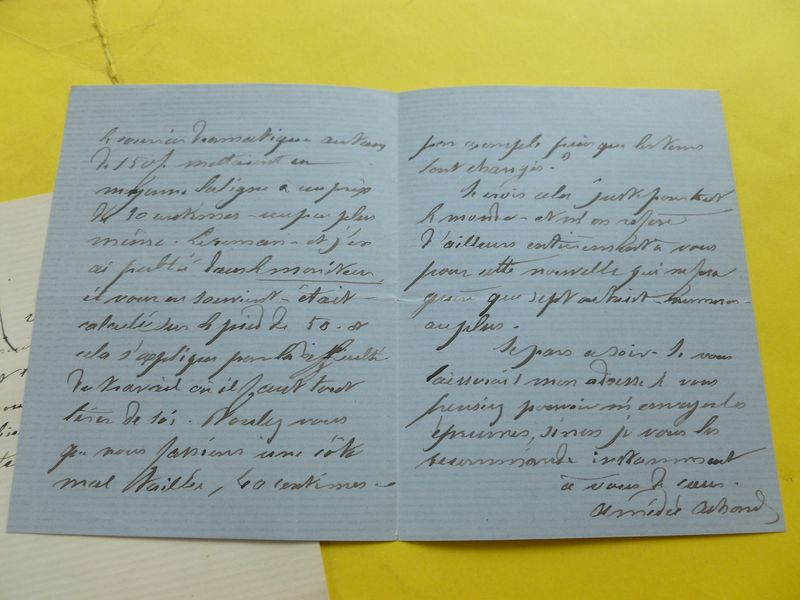 le courier dramatique autour
de 150f. mettaient en
moyenne la ligne a un prix
de 30 centimes - un peu plus
même. Le roman - et j'en
ai publié dans le moniteur
il vous en souvient - était
calculée sur le pied de 50. et
cela s'explique par la difficulté
du travail où il faut tout
tirer de soi. Voulez vous
que nous fassions une côte
mal taillée, 40 centimes -
par exemple puisque les tems
sont changés ?
Je crois cela juste pour tout
le monde - et m'en refère
d'ailleurs entièrement a vous
pour cette nouvelle qui ne fera
guère que sept ou huit numeros -
au plus.
Je pars ce soir - Je vous
laisserai mon adresse si vous
pensiez pouvoir m'envoyer les
épreuves, sinon je vous les
recommande instamment
à vous de cœur.
Amédée Achard